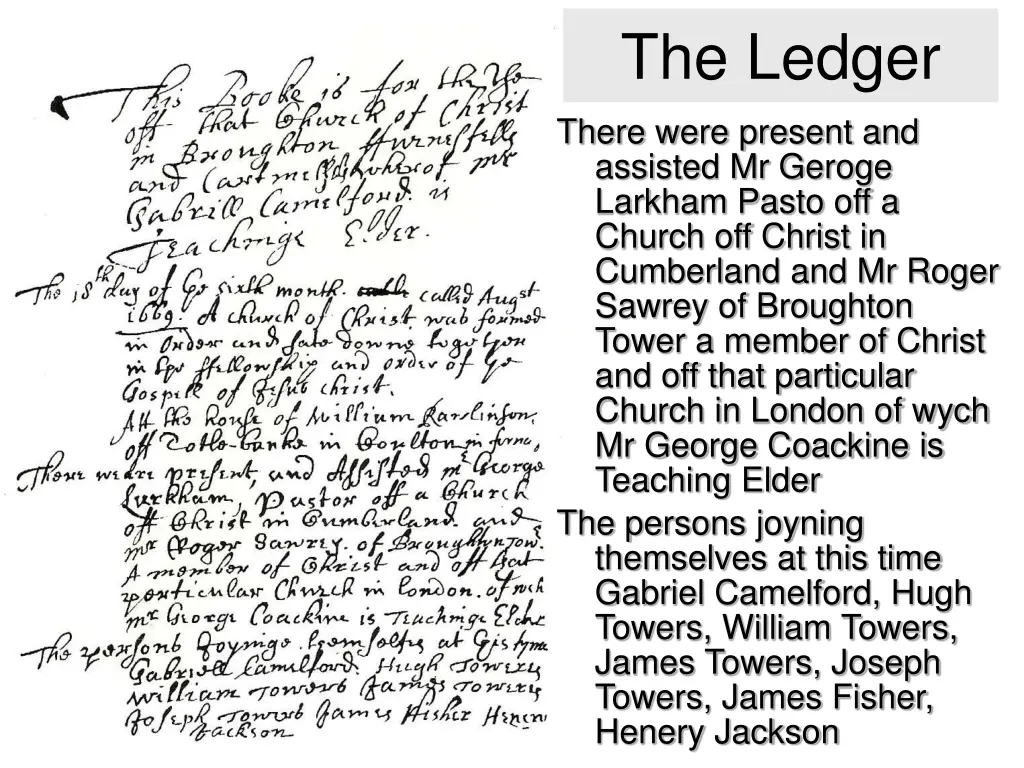 This Booke is for the Vse
off that Church of Christ
in Broughton ffurnesfells
and Cartmell wherof mr
Gabriell Camelford. is
Teachinge Elder.
The 18th day of ye sixth month. called Augst
1669. A church of Christ was formed
in order and sate downe together
in the ffellowship and order of ye
Gospell of Jesus Christ.
Att the house of William Rawlinson.
off Totle-banke in Coulton in furns,
There weare present, and Assisted mr George
Larkham, Pastor off a Church
off Christ in Cumberland. and
mr Roger Sawrey. of Broughton Tow.
A member of Christ and off that
perticular Church in london. of wch
mr George Coackine is Teachinge Elder
The persons Joyninge themselves at this tyme
Gabriell Camelford. Hugh Towers
William Towers James Towers
Joseph Towers James Fisher Henery
Jackson
The Ledger
There were present and
assisted Mr Geroge
Larkham Pasto off a
Church off Christ in
Cumberland and Mr Roger
Sawrey of Broughton
Tower a member of Christ
and off that particular
Church in London of wych
Mr George Coackine is
Teaching Elder
The persons joyning
themselves at this time
Gabriel Camelford, Hugh
Towers, William Towers,
James Towers, Joseph
Towers, James Fisher,
Henery Jackson